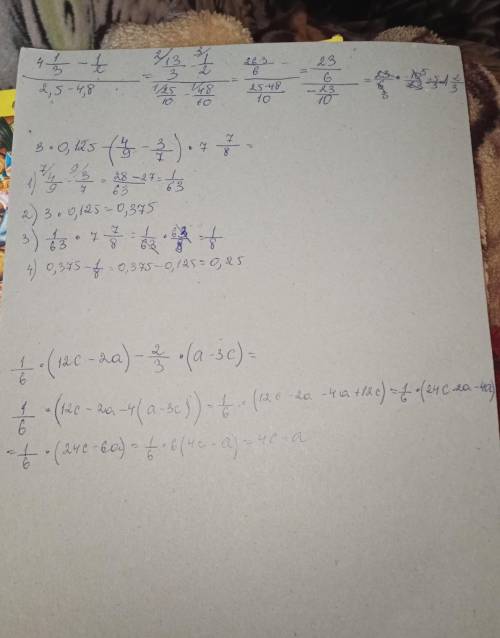 (4 1/3 - 1/2) / (2,5 - 4,8) = (²⁄ 13/3 - ³⁄ 1/2) / (¹⁄ 25/10 - ¹⁄ 48/10) = (26-3 / 6) / (25-48 / 10) = (23/6) / (-23/10) =
3 · 0,125 - (4/9 - 3/7) · 7 7/8 =
1) ⁷⁄ 4/9 - ⁹⁄ 3/7 = 28-27 / 63 = 1/63
2) 3 · 0,125 = 0,375
3) 1/63 · 7 7/8 = 1/63 · 63/8 = 1/8
4) 0,375 - 1/8 = 0,375 - 0,125 = 0,25
1/6 · (12c - 2a) - 2/3 · (a - 3c) =
1/6 · (12c - 2a - 4(a - 3c)) = 1/6 · (12c - 2a - 4a + 12c) = 1/6 · (24c - 2a - 4a)
= 1/6 · (24c - 6a) = 1/6 · 6(4c - a) = 4c - a